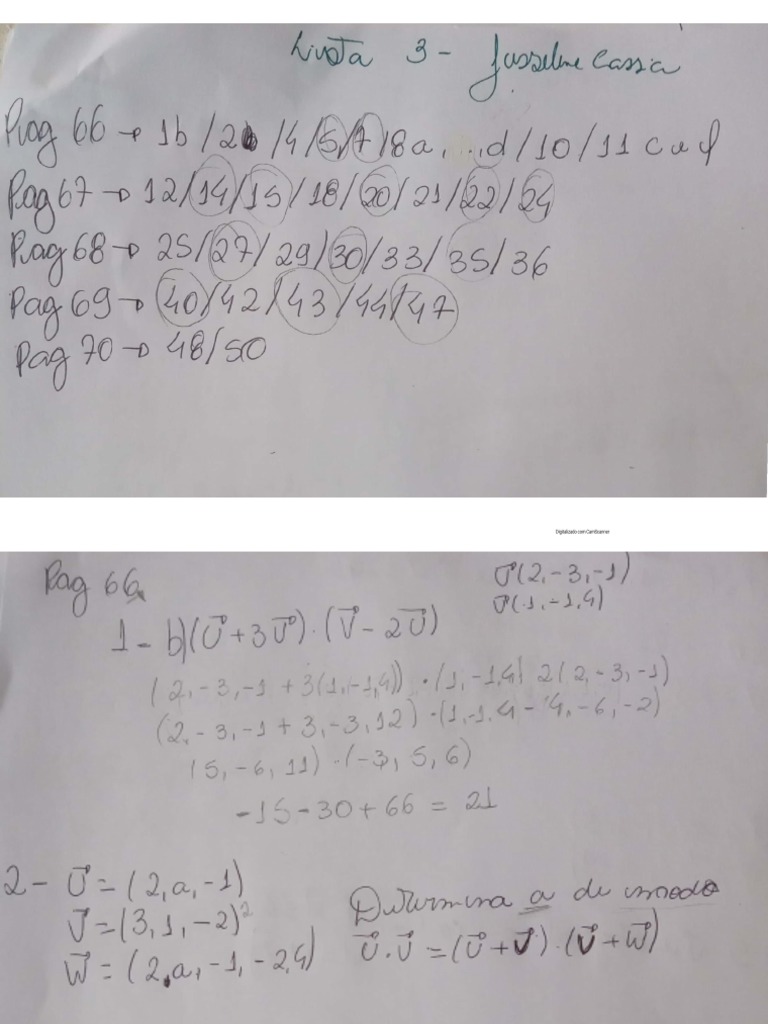 Lista 3 - Jusseline Cassia
Pag 66 → 1b / 2b / 4 / 5 / 7 / 8a, ... d / 10 / 11 c e f
Pag 67 → 12 / 14 / 15 / 18 / 20 / 21 / 22 / 24
Pag 68 → 25 / 27 / 29 / 30 / 33 / 35 / 36
Pag 69 → 40 / 42 / 43 / 44 / 47
Pag 70 → 48 / 50
Digitalizado com CamScanner
Pag 66
U⃗(2,-3,-1)
V⃗(1,-1,4)
1 - b)(U⃗+3V⃗)·(V⃗-2U⃗)
(2,-3,-1 + 3(1,-1,4))·(1,-1,4) 2(2,-3,-1)
(2,-3,-1+3,-3,12)·(1,-1,4 - 4,-6,-2)
(5,-6,11)·(-3,5,6)
-15-30+66 = 21
2 - U⃗ = (2,a,-1)
V⃗ = (3,1,-2)²
W⃗ = (2,a,-1,-2,4)
Determina a de modo
U⃗·V⃗ = (U⃗+V⃗)·(V⃗+W⃗)